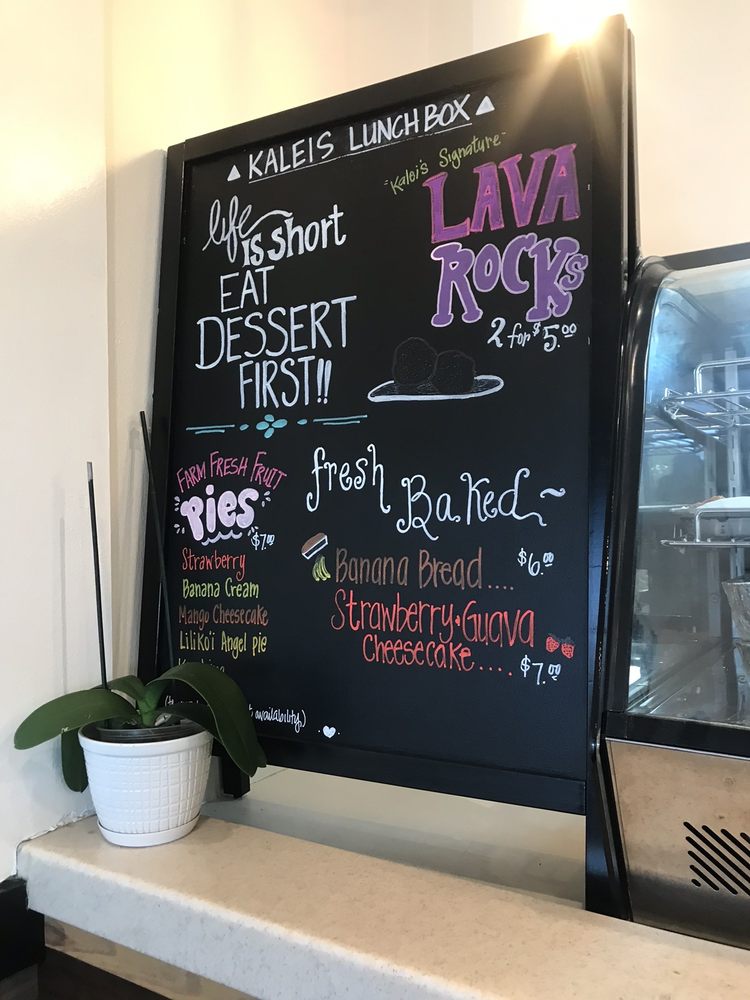 KALEIS LUNCHBOX
life
is short
EAT
DESSERT
FIRST!!
"Kalei's Signature"
LAVA
ROCKs
2 for $5.00
FARM FRESH FRUIT
Pies
$7.00
Strawberry
Banana Cream
Mango Cheesecake
Lilikoi Angel pie
fresh
Baked~
Banana Bread.... $6.00
Strawberry•Guava
Cheesecake.... $7.00
availability)